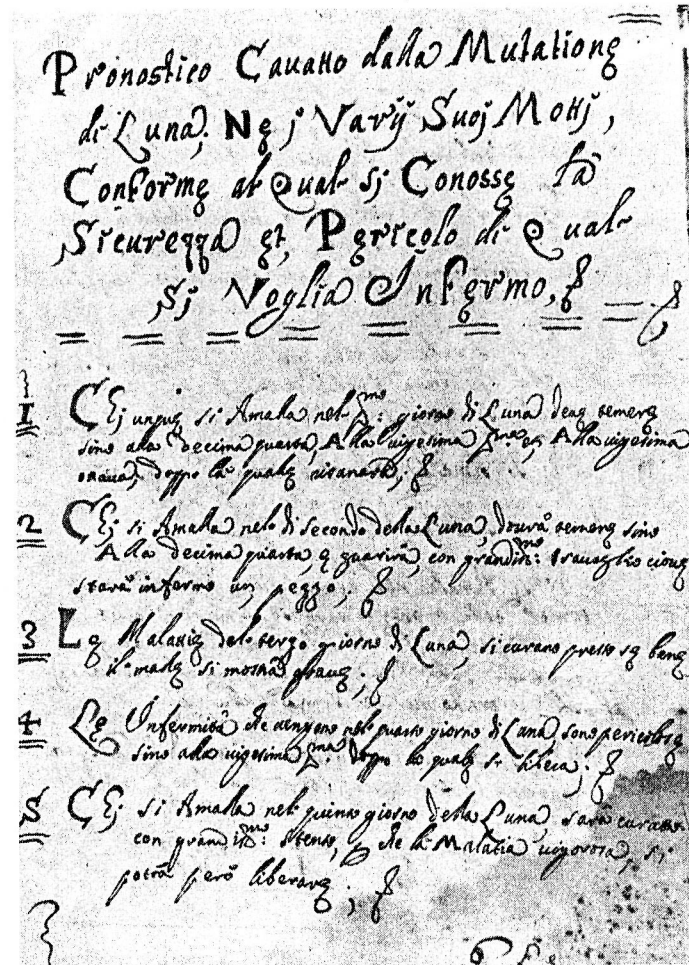 Pronostico Cauatto dalla Mutatione
di Luna; Ne j Varij Suoj Mottj,
Conforme al Qual sj Conosse la
Sicurezza et, Pericolo di Qual
Sj Voglia Infermo,
1 Chj unque si Amalla nel p.mo: giorno di Luna deue temere
sino alla decima quarta, Alla uigesima p.ma et, Alla uigesima
ottaua, doppo la quale risanarà;
2 Chj si Amalla nel di secondo della Luna, dourà temere sino
Alla decima quarta, e guarirà, con grandis.mo: trauaglio cioue
starà infermo un pezzo;
3 Le Malattie del terzo giorno di Luna, si curano presto se bene
il male si mostra graue;
4 Le Infermità che uengono nel quarto giorno di Luna sono pericolose
sino alla uigesima p.ma: doppo la quale si libera;
5 Chj si Amalla nel quinto giorno della Luna, sarà curatto
con grandis.mo: stento, che la Malatia uigorosa, si
potrà però liberare;